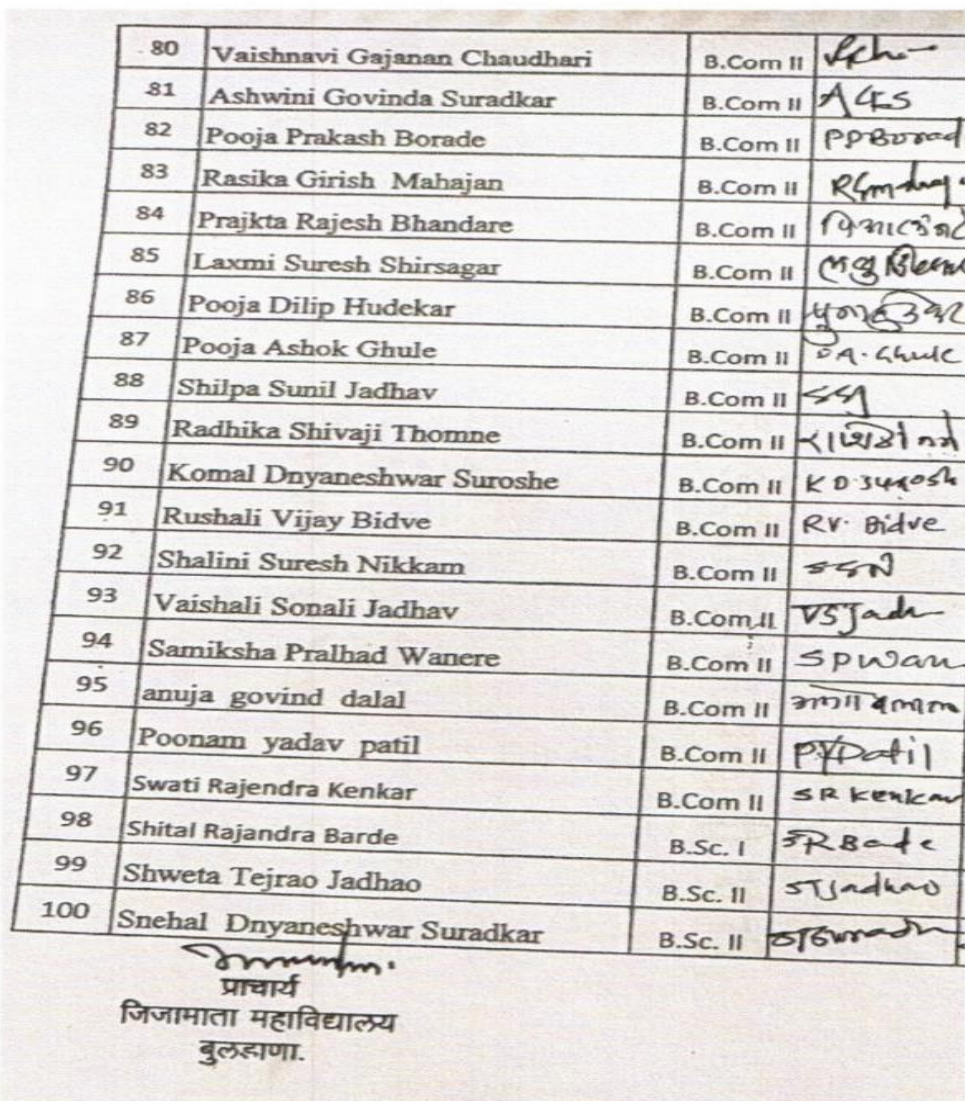 80 Vaishnavi Gajanan Chaudhari B.Com II
81 Ashwini Govinda Suradkar B.Com II
82 Pooja Prakash Borade B.Com II PPBorad
83 Rasika Girish Mahajan B.Com II
84 Prajkta Rajesh Bhandare B.Com II
85 Laxmi Suresh Shirsagar B.Com II
86 Pooja Dilip Hudekar B.Com II
87 Pooja Ashok Ghule B.Com II P.A. Ghule
88 Shilpa Sunil Jadhav B.Com II
89 Radhika Shivaji Thomne B.Com II
90 Komal Dnyaneshwar Suroshe B.Com II K D. Surosh
91 Rushali Vijay Bidve B.Com II RV. Bidve
92 Shalini Suresh Nikkam B.Com II
93 Vaishali Sonali Jadhav B.Com II VSJadh
94 Samiksha Pralhad Wanere B.Com II SPWan
95 anuja govind dalal B.Com II
96 Poonam yadav patil B.Com II P.Y.Patil
97 Swati Rajendra Kenkar B.Com II SR Kenkar
98 Shital Rajandra Barde B.Sc. I SRBade
99 Shweta Tejrao Jadhao B.Sc. II STJadhao
100 Snehal Dnyaneshwar Suradkar B.Sc. II
प्राचार्य
जिजामाता महाविद्यालय
बुलडाणा.